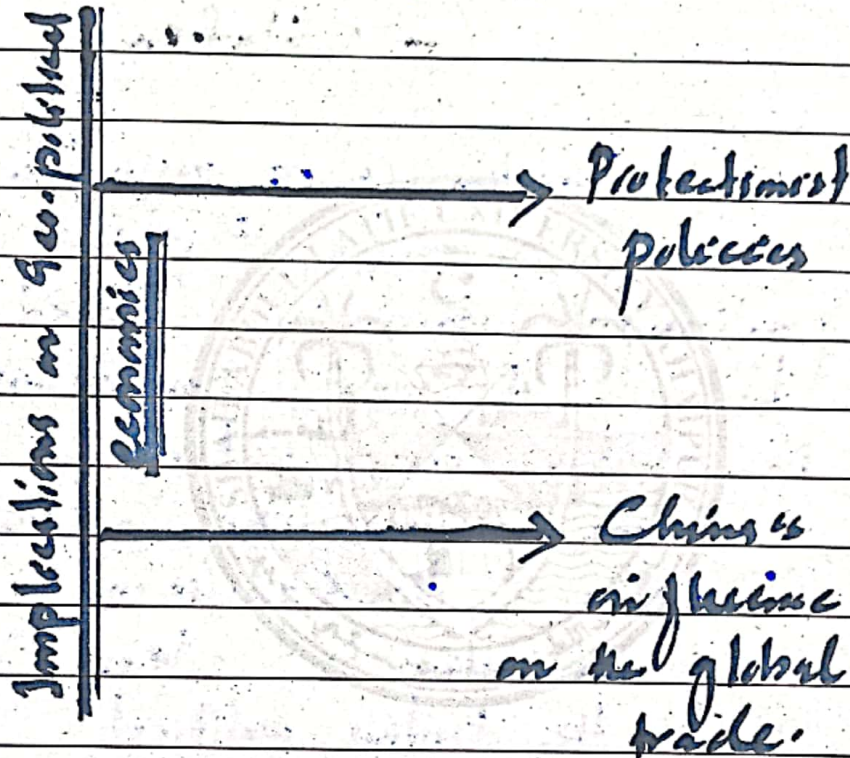 Implications on Geo-political
economics
Protectionist
policies
China's
influence
on the global
trade.